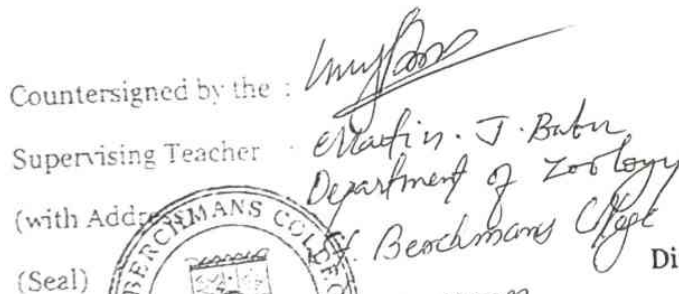 Countersigned by the :
Supervising Teacher : Martin. J. Babu
Department of Zoology
(with Address)
BERCHMANS COLLEGE
Berchmans College
(Seal)
Di